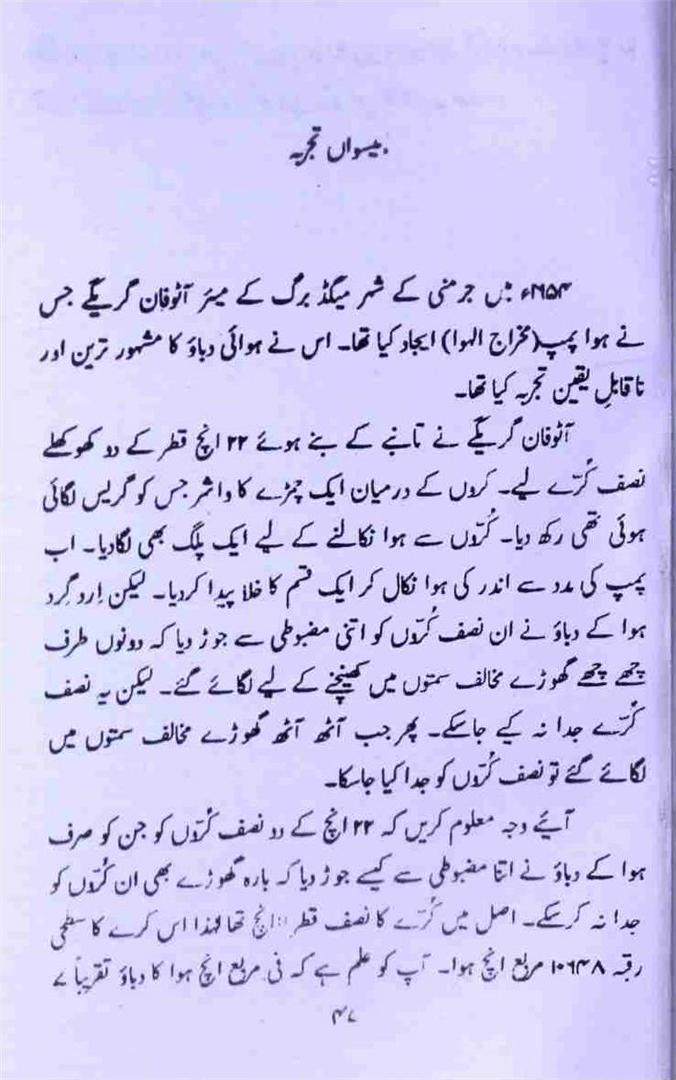 بیسواں تجربہ
۱۶۵۴ء میں جرمنی کے شہر میگڈ برگ کے میئر آٹوفان گریگے جس
نے ہوا پمپ (مخراج الہوا) ایجاد کیا تھا۔ اس نے ہوائی دباؤ کا مشہور ترین اور
ناقابلِ یقین تجربہ کیا تھا۔
آٹوفان گریگے نے تانبے کے بنے ہوئے ۲۲ انچ قطر کے دو کھوکھلے
نصف کُرّے لیے۔ کروں کے درمیان ایک چمڑے کا واشر جس کو گریس لگائی
ہوئی تھی رکھ دیا۔ کُرّوں سے ہوا نکالنے کے لیے ایک پلگ بھی لگادیا۔ اب
پمپ کی مدد سے اندر کی ہوا نکال کر ایک قسم کا خلا پیدا کردیا۔ لیکن اِرد گِرد
ہوا کے دباؤ نے ان نصف کُرّوں کو اتنی مضبوطی سے جوڑ دیا کہ دونوں طرف
چھے چھے گھوڑے مخالف سمتوں میں کھینچنے کے لیے لگائے گئے۔ لیکن یہ نصف
کُرّے جدا نہ کیے جاسکے۔ پھر جب آٹھ آٹھ گھوڑے مخالف سمتوں میں
لگائے گئے تو نصف کُرّوں کو جدا کیا جاسکا۔
آیئے وجہ معلوم کریں کہ ۲۲ انچ کے دو نصف کُرّوں کو جن کو صرف
ہوا کے دباؤ نے اتنا مضبوطی سے کیسے جوڑ دیا کہ بارہ گھوڑے بھی ان کُرّوں کو
جدا نہ کرسکے۔ اصل میں کُرّے کا نصف قطر ۱۱ انچ تھا لہٰذا اس کرے کا سطحی
رقبہ ۱۰۶۴۸ مربع انچ ہوا۔ آپ کو علم ہے کہ فی مربع انچ ہوا کا دباؤ تقریباً ۷
۴۷